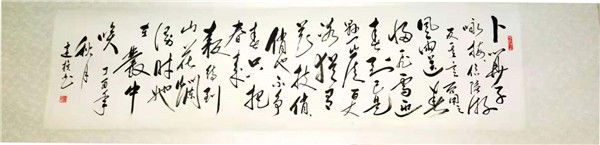 卜算子
咏梅 陆游
反其意而用之
风雨送春
归飞雪迎
春到已是
悬崖百丈
冰犹有
花枝俏
俏也不争
春只把
春来
报待到
山花烂
漫时她
在丛中
笑 丁酉年
秋月
书